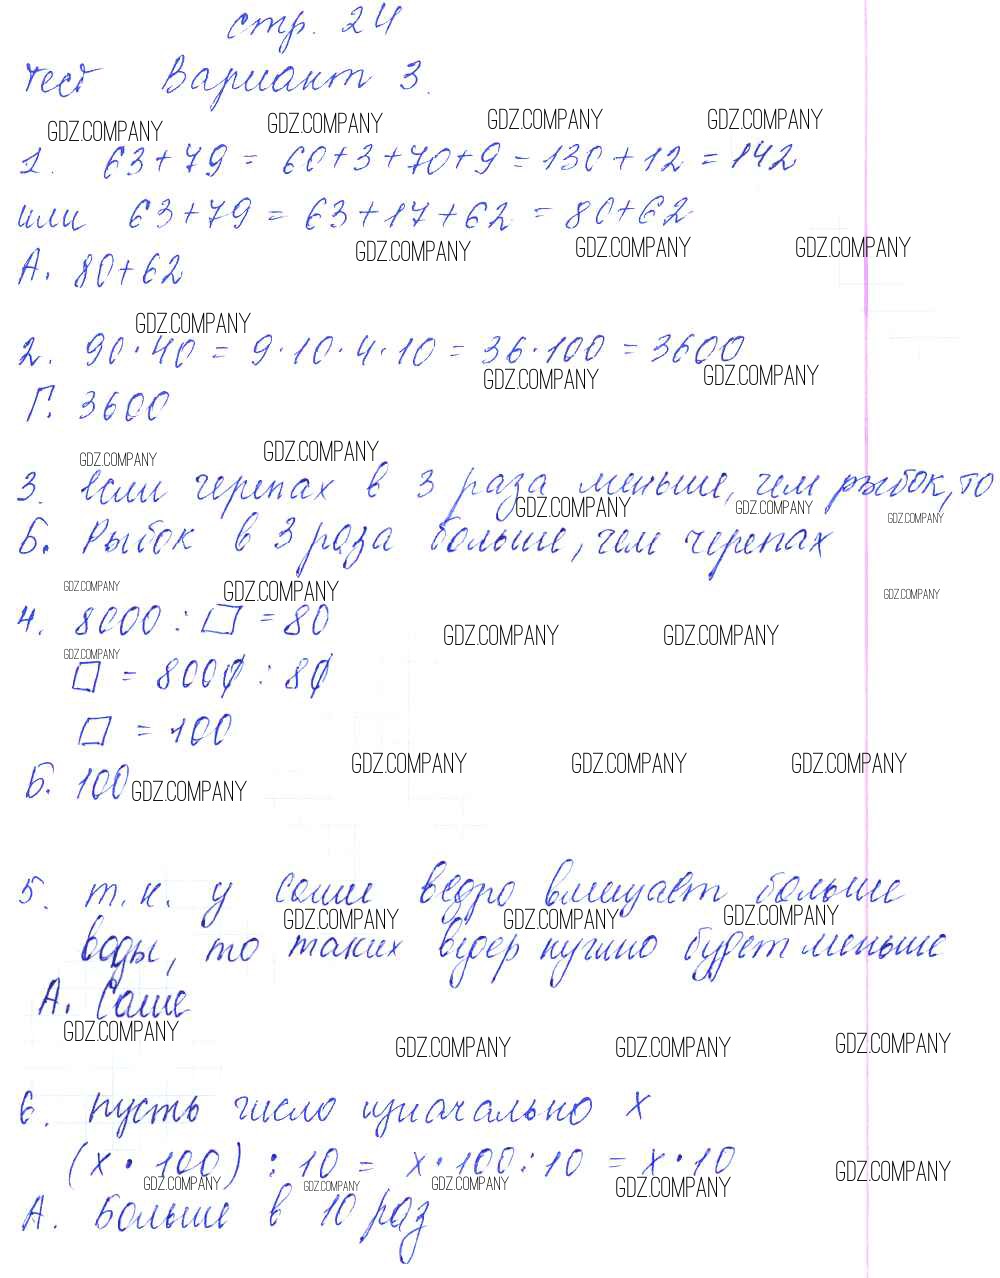 стр. 24
тест Вариант 3.
GDZ.COMPANY GDZ.COMPANY GDZ.COMPANY GDZ.COMPANY
1. 63+79 = 60+3+70+9 = 130+12 = 142
или 63+79 = 63+17+62 = 80+62
GDZ.COMPANY GDZ.COMPANY GDZ.COMPANY
А. 80+62
GDZ.COMPANY
2. 90·40 = 9·10·4·10 = 36·100 = 3600
GDZ.COMPANY GDZ.COMPANY
Г. 3600
GDZ.COMPANY GDZ.COMPANY
3. если черепах в 3 раза меньше, чем рыбок, то
GDZ.COMPANY GDZ.COMPANY GDZ.COMPANY
Б. Рыбок в 3 раза больше, чем черепах
GDZ.COMPANY GDZ.COMPANY GDZ.COMPANY
4. 8000 : □ = 80
GDZ.COMPANY GDZ.COMPANY
GDZ.COMPANY
□ = 8000 : 80
□ = 100
GDZ.COMPANY GDZ.COMPANY GDZ.COMPANY
Б. 100 GDZ.COMPANY
5. т.к. у Саши ведро вмещает больше
GDZ.COMPANY GDZ.COMPANY GDZ.COMPANY
воды, то таких вёдер нужно будет меньше
А. Саше
GDZ.COMPANY GDZ.COMPANY GDZ.COMPANY GDZ.COMPANY
6. пусть число изначально х
(х · 100) : 10 = х·100:10 = х·10
GDZ.COMPANY GDZ.COMPANY GDZ.COMPANY GDZ.COMPANY GDZ.COMPANY
А. Больше в 10 раз